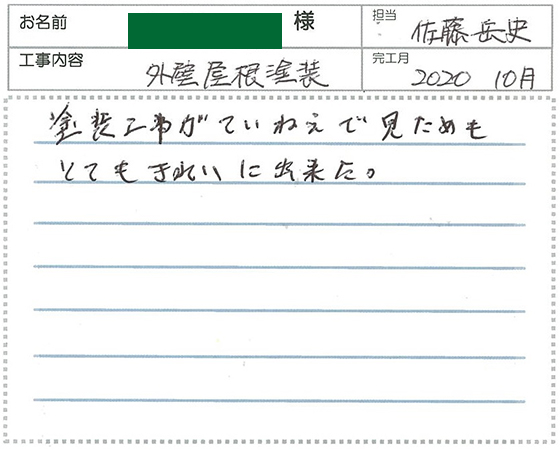 お名前 様 担当 佐藤岳史
工事内容 外壁屋根塗装 完工月 2020 10月
塗装工事がていねえで見ためも
とてもきれいに出来た。